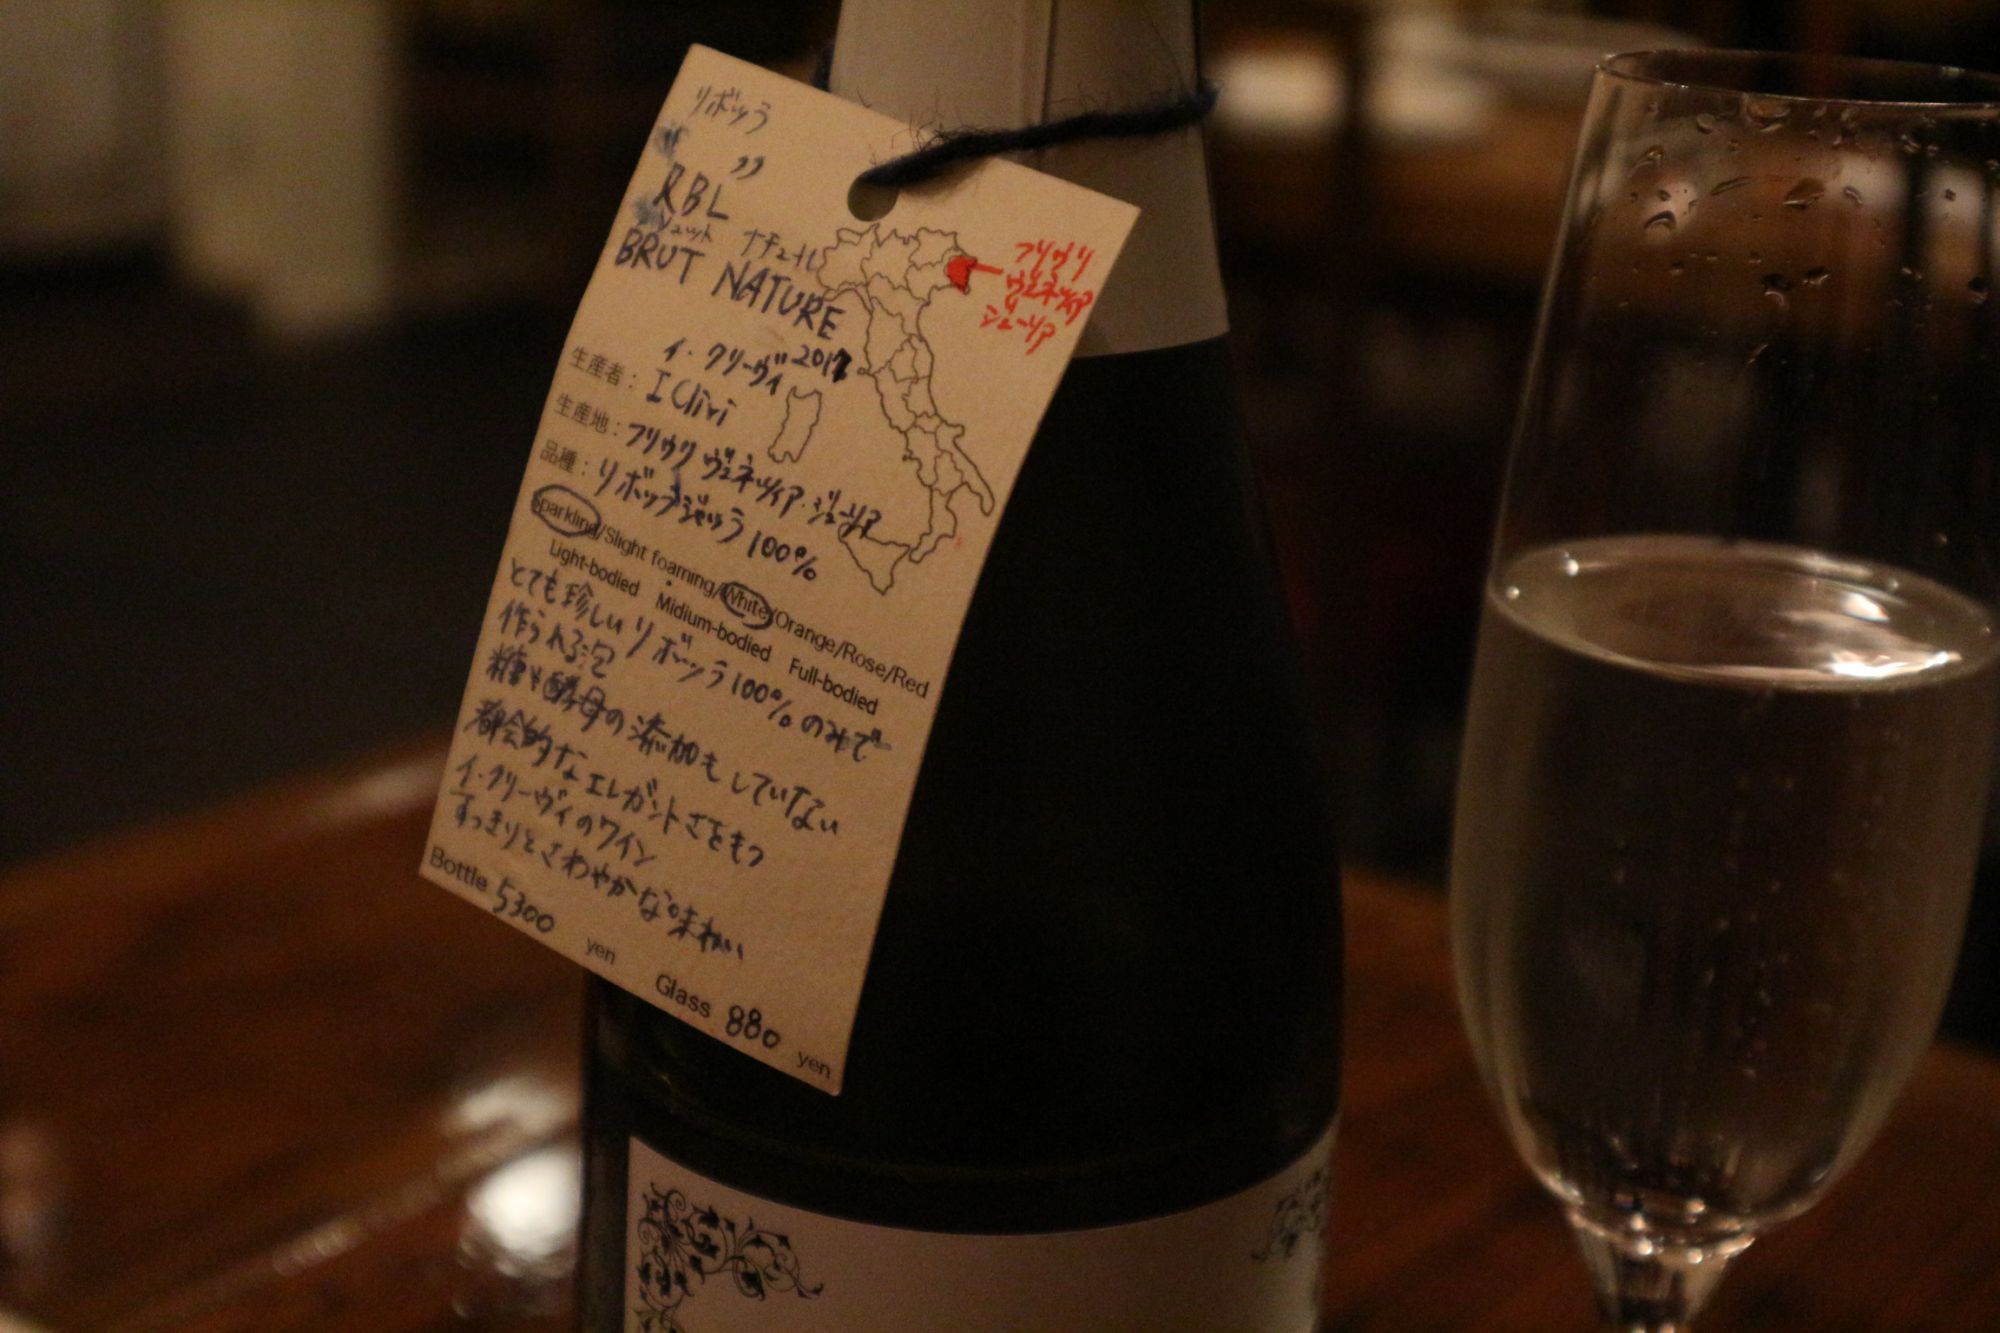 リボッラ
RBL
ブリュット ナチュール
BRUT NATURE
フリウリ
ヴェネツィア
ジューリア
イ・クリーヴィ 2017
生産者： I Clivi
生産地： フリウリ ヴェネツィア・ジューリア
品種： リボッラジャッラ 100%
Sparkling/Slight foaming/White/Orange/Rose/Red
Light-bodied Midium-bodied Full-bodied
とても珍しいリボッラ100%のみで
作られる泡
糖や酵母の添加もしていない
都会的なエレガントさをもつ
イ・クリーヴィのワイン
すっきりとさわやかな味わい
Bottle 5300 yen Glass 880 yen